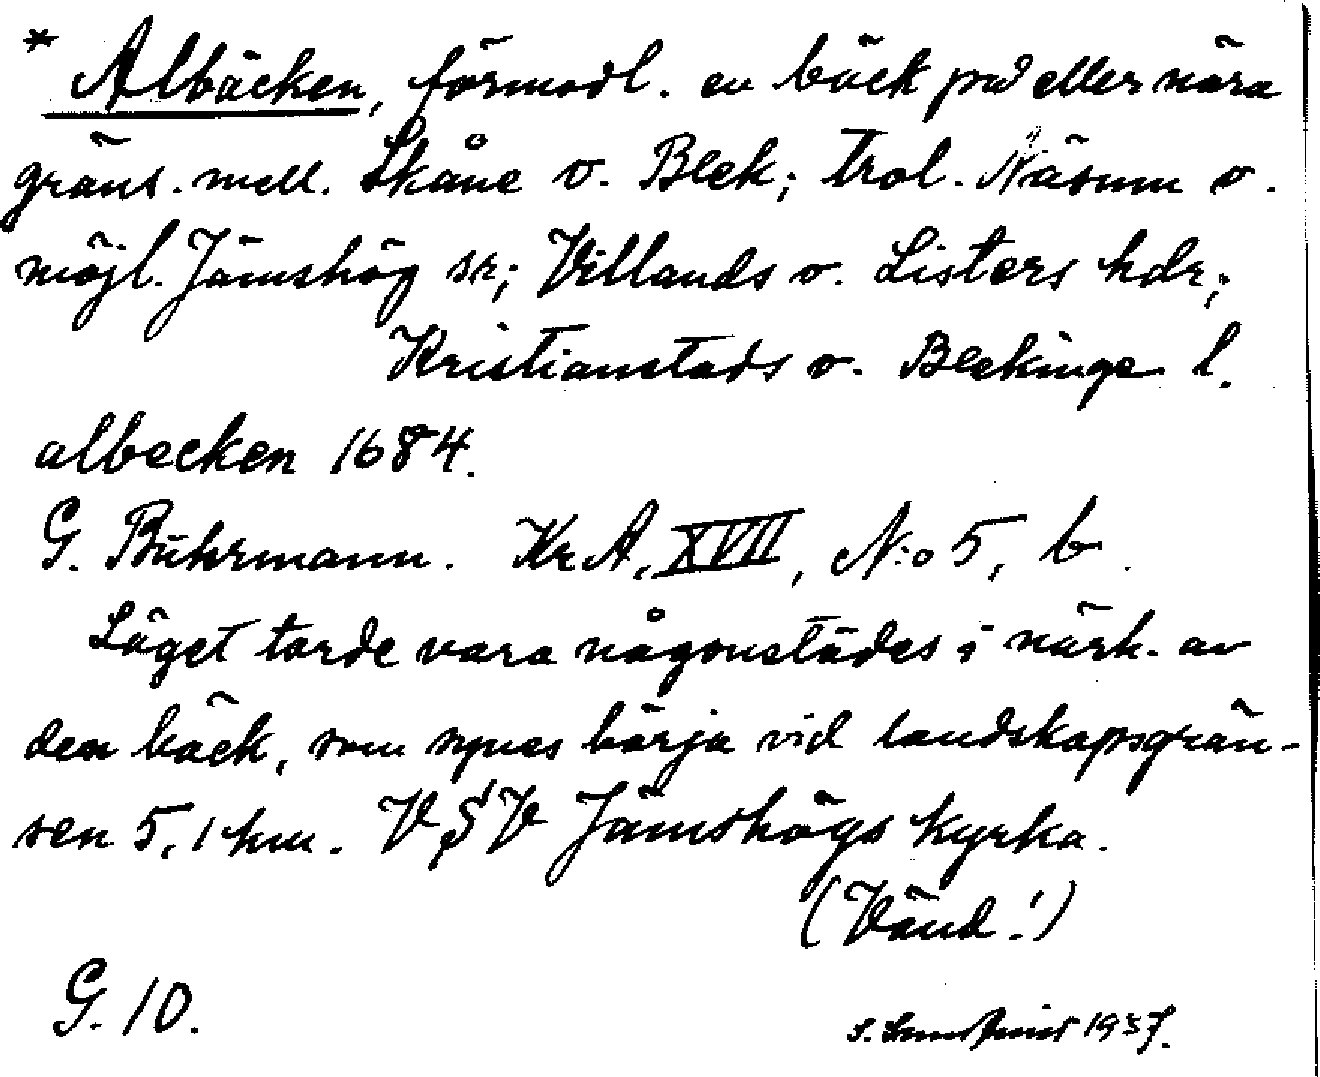 * Albäcken, förmodl. en bäck på eller nära
gräns. mell. Skåne o. Blek; trol. Näsum o.
möjl. Jämshög sr; Villands o. Listers hdr;
Kristianstads o. Blekinge l.
albecken 1684.
G. Buhrmann. Kr A, XVII, N:o 5, b.
Läget torde vara någonstädes i närh. av
den bäck, som synes börja vid landskapsgrän-
sen 5,1 km. VSV Jämshögs kyrka.
(Vänd!)
G. 10.
S. 1937.